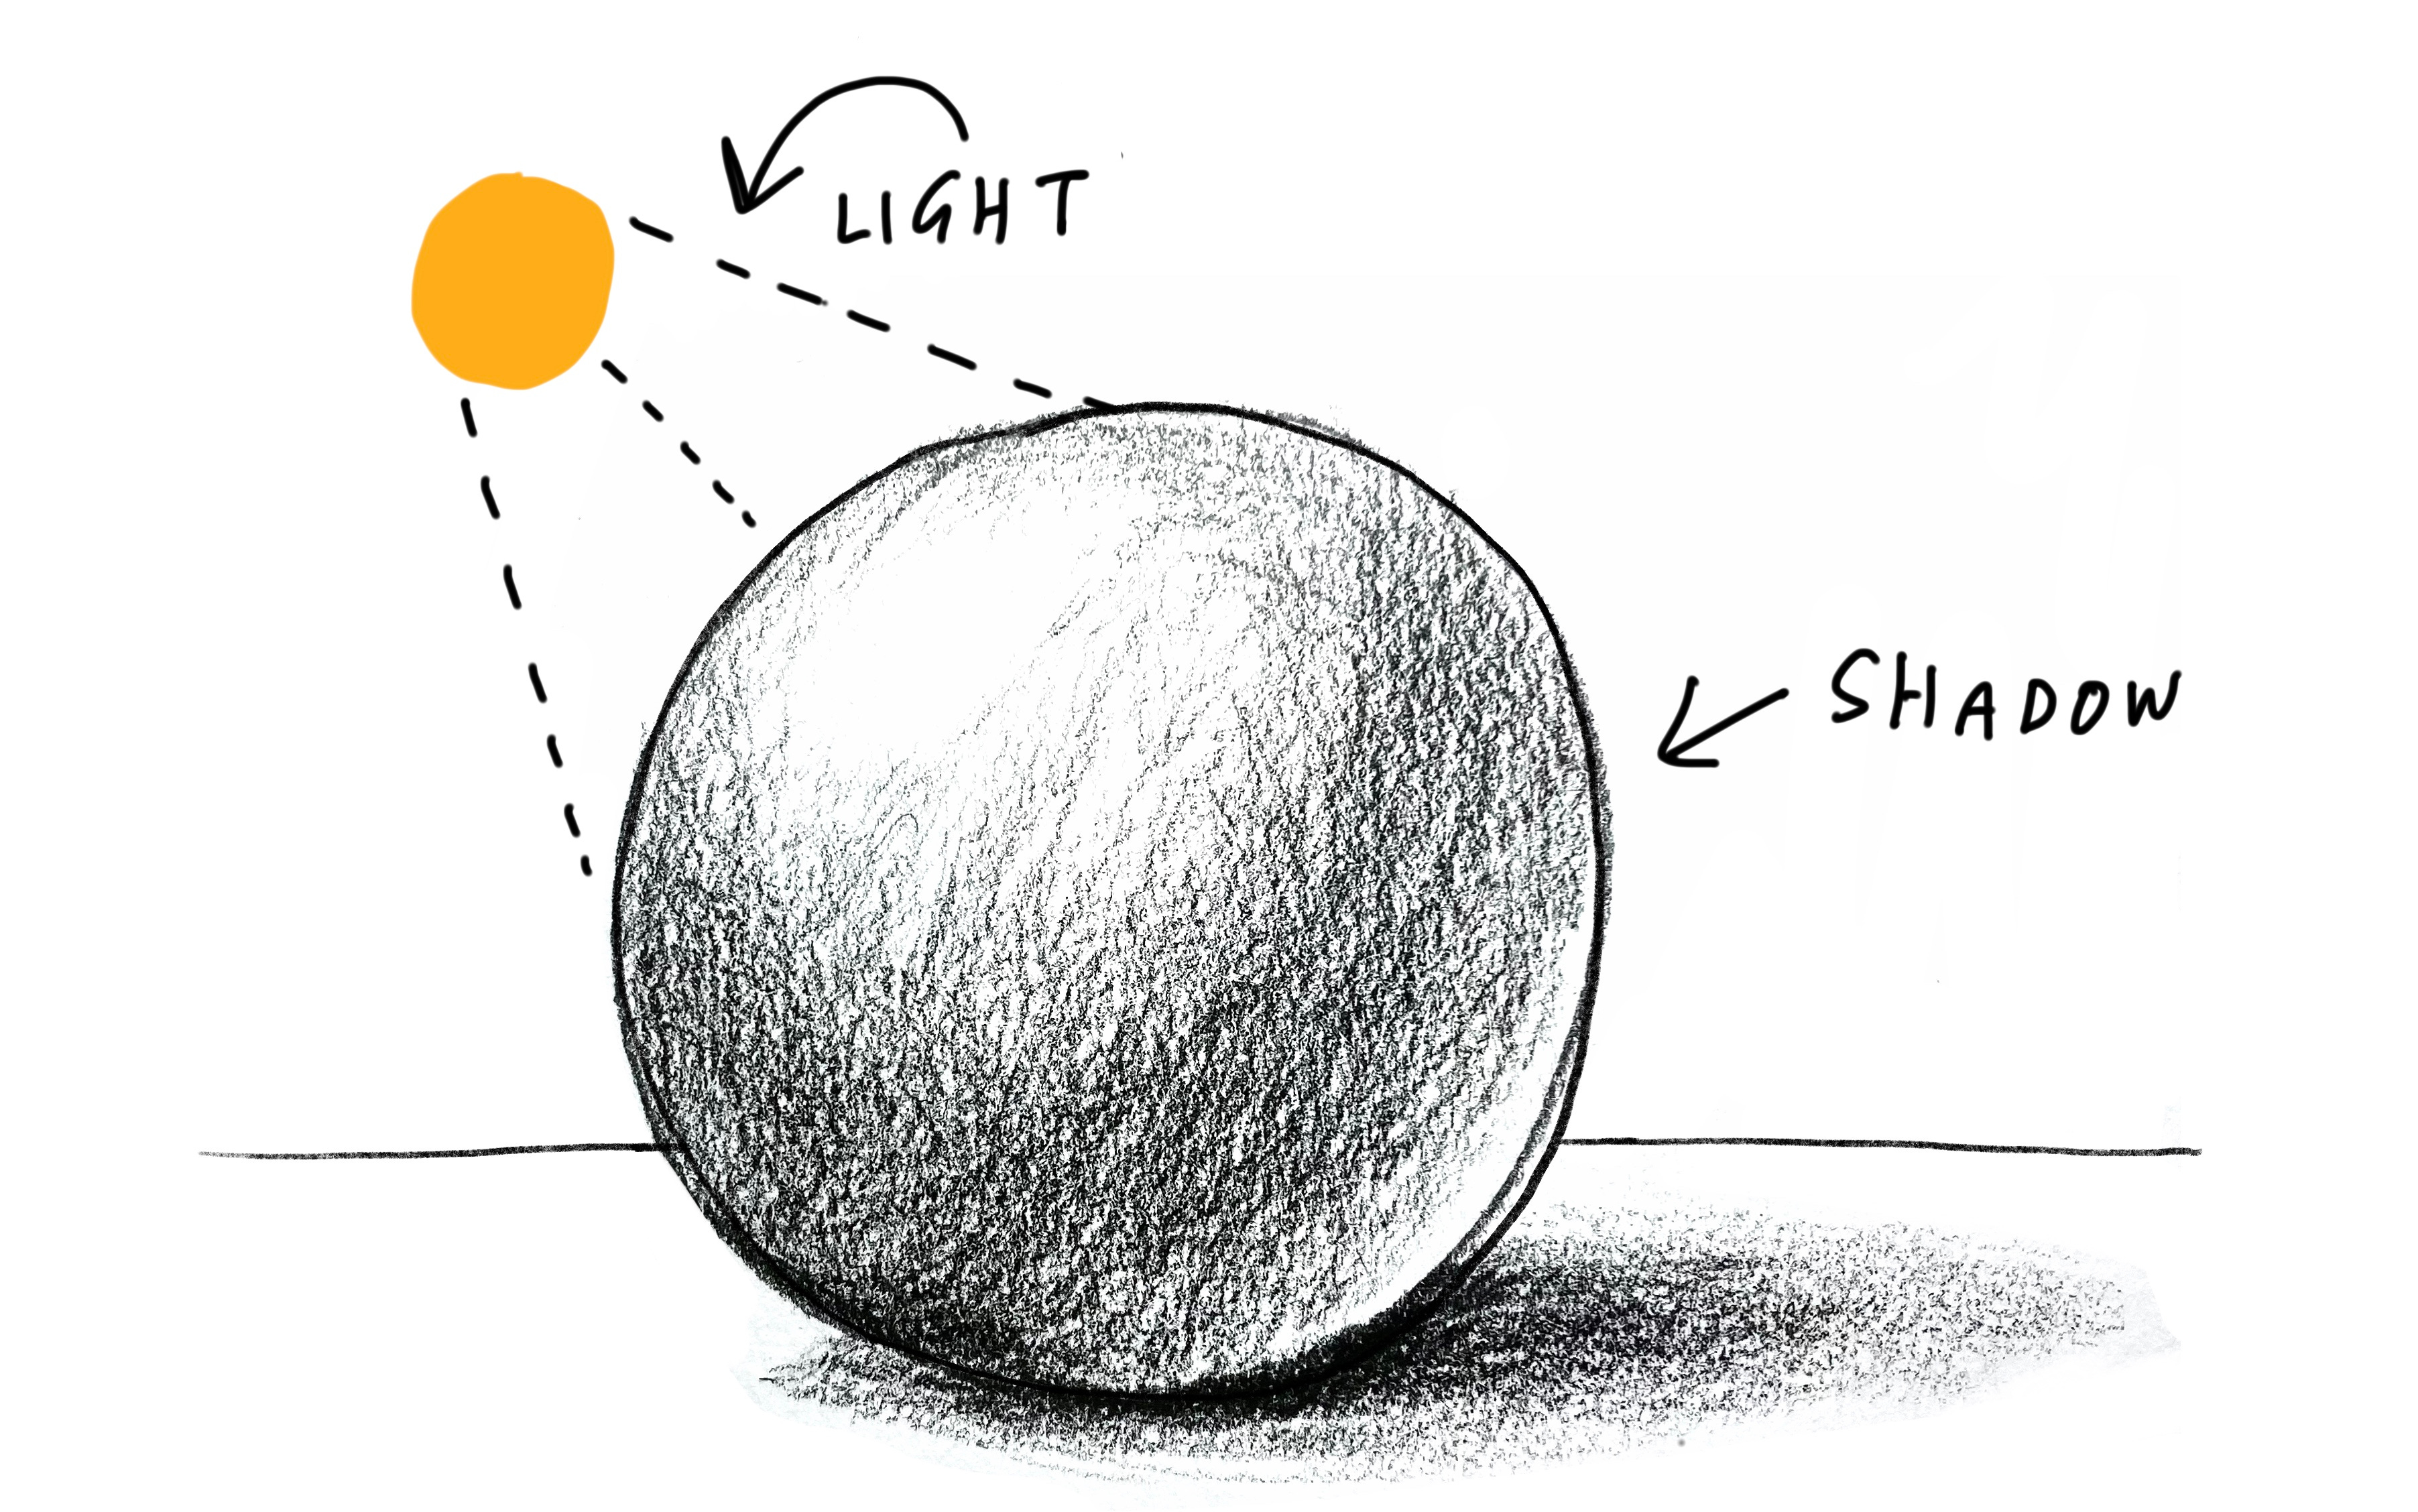 LIGHT
SHADOW